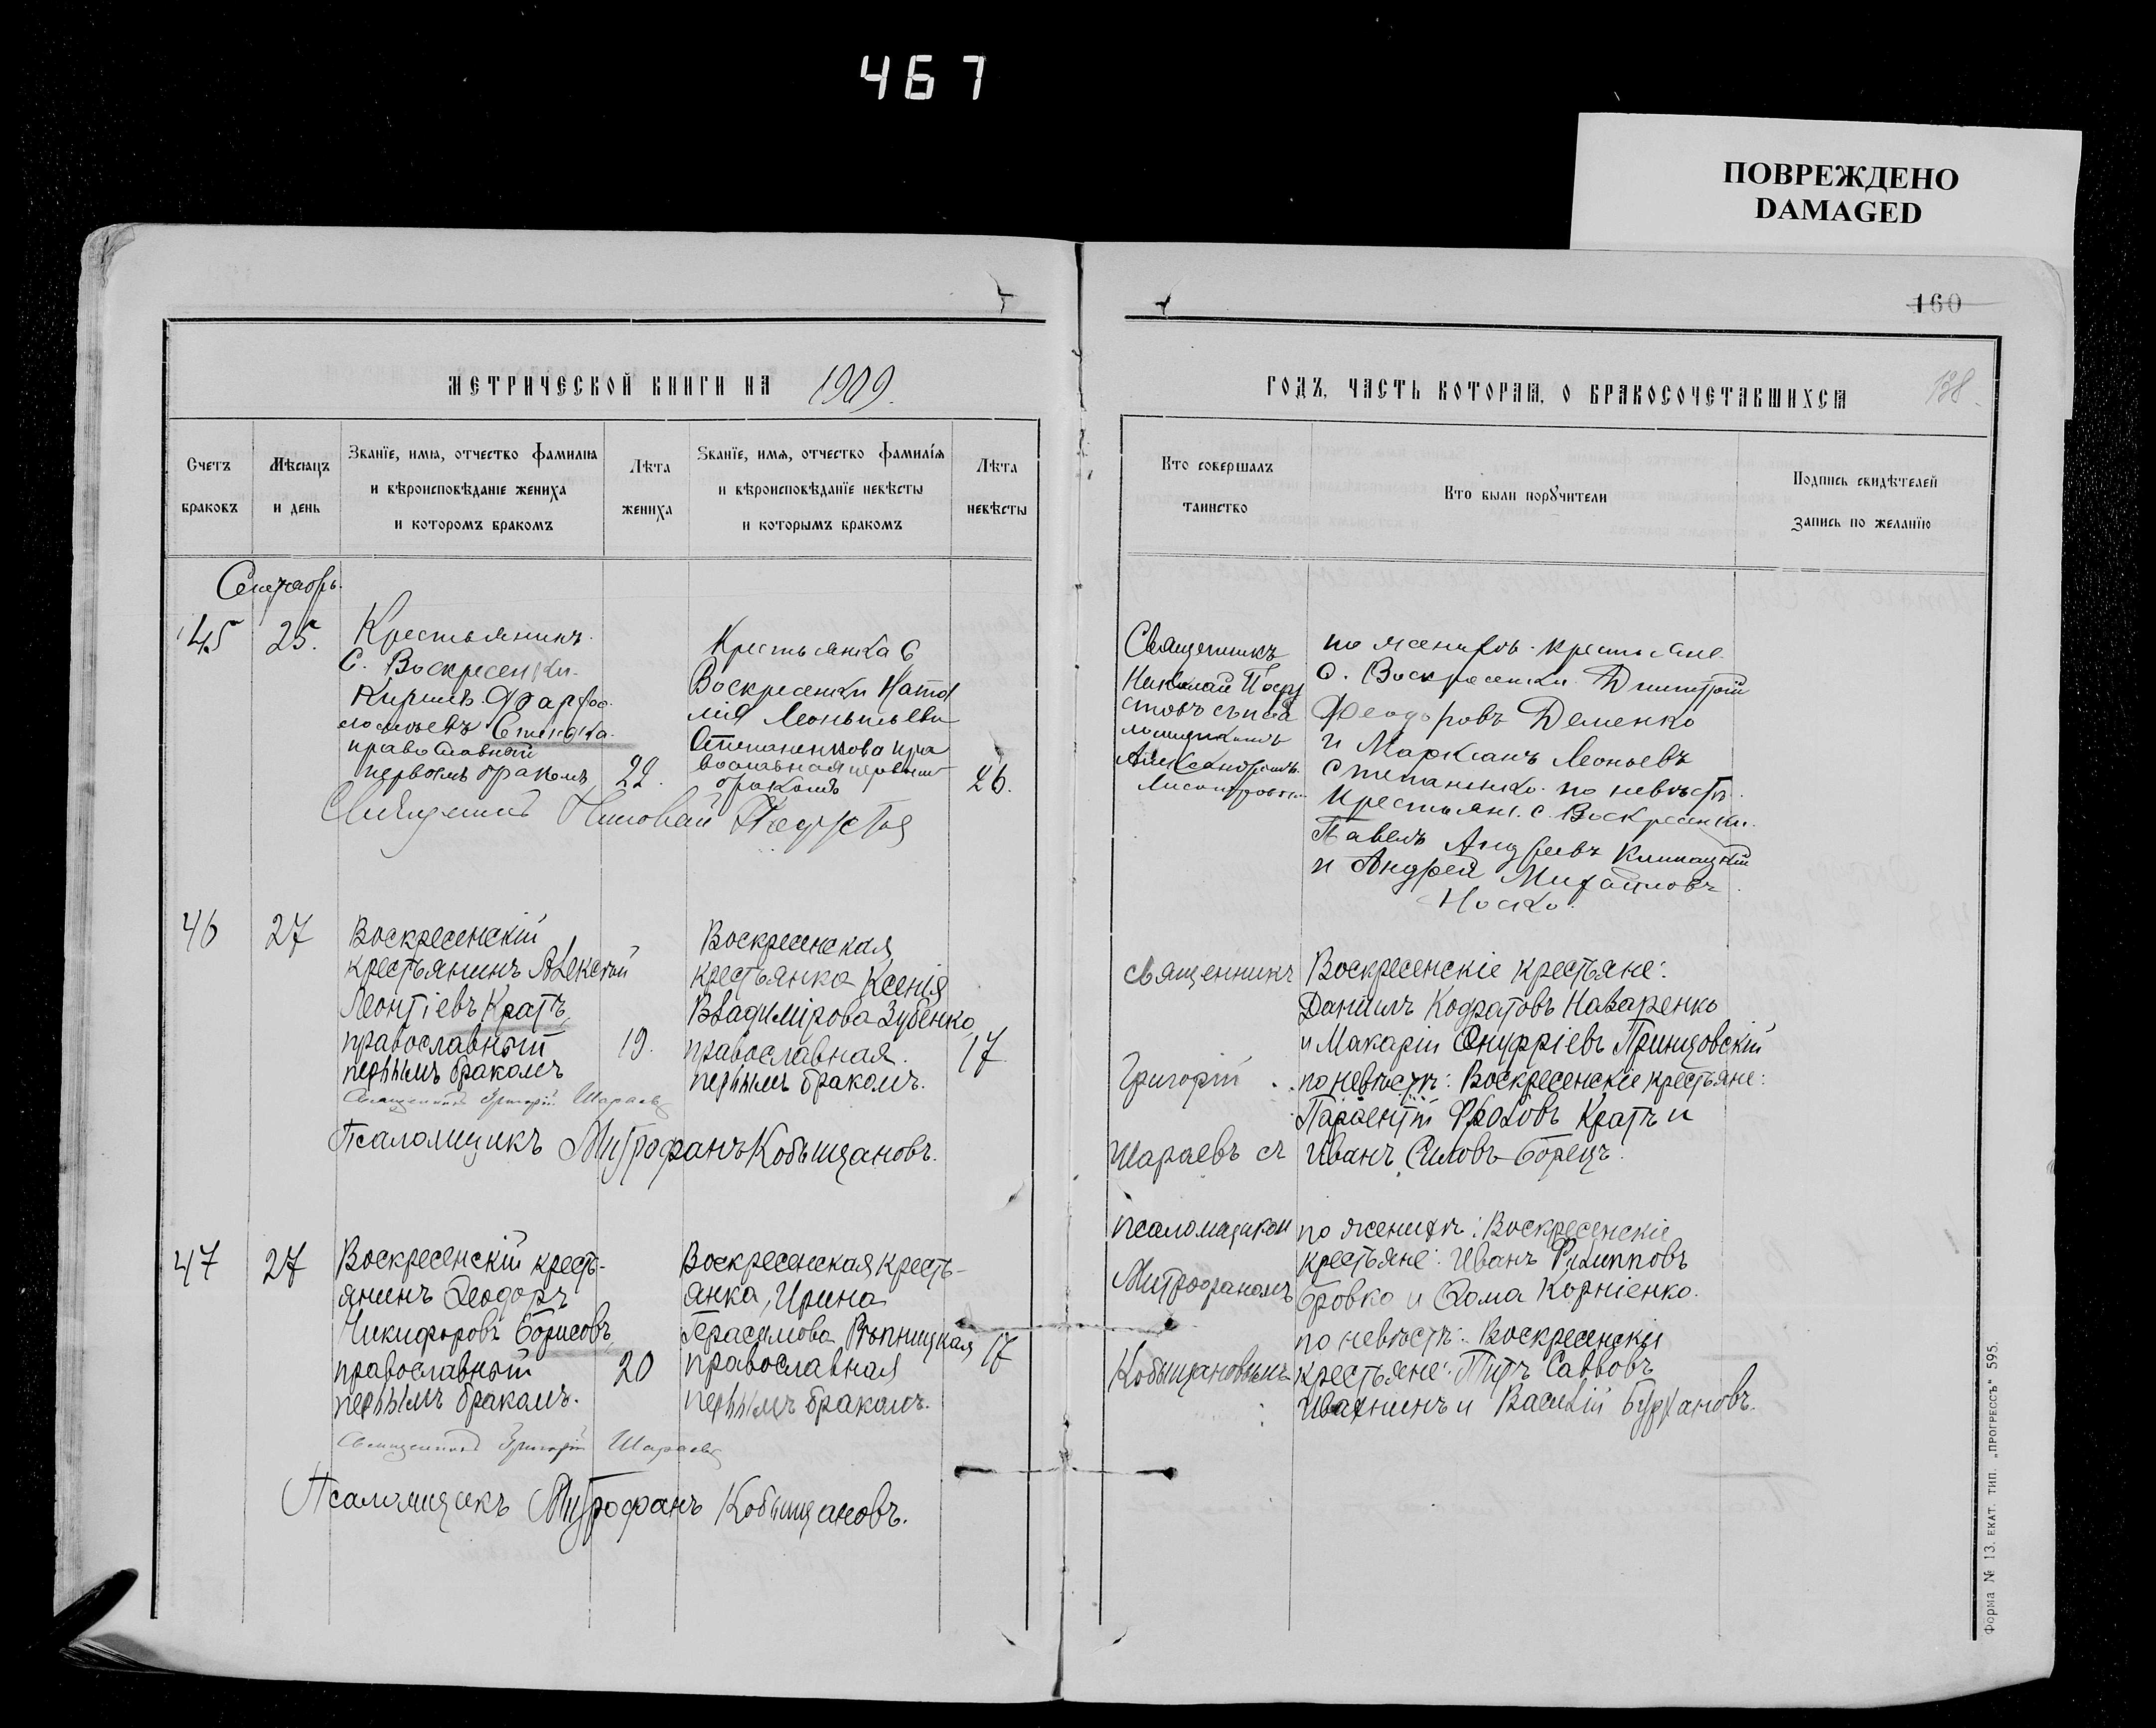 467
ПОВРЕЖДЕНО
DAMAGED
160
МЕТРИЧЕСКОЙ КНИГИ НА 1909.
ГОДЪ, ЧАСТЬ КОТОРАЯ, О БРАКОСОЧЕТАВШИХСЯ
138
Счетъ
браковъ
Мѣсяцъ
и день
Званїе, имя, отчество фамилия
и вѣроисповѣданїе жениха
и которомъ бракомъ
Лѣта
жениха
Званїе, имя, отчество фамилїя
и вѣроисповѣданїе невѣсты
и которымъ бракомъ
Лѣта
невѣсты
Кто совершалъ
таинство
Кто были поручители
Подпись свидѣтелей
Запись по желанїю
Сентябрь.
45
25.
Крестьянинъ
С. Воскресенки
Кириллъ
православный
первымъ бракомъ
22.
Крестьянка С.
Воскресенки
Леонтьева
православная первым
бракомъ
26.
Священникъ Николай
Священникъ
Николай
Александромъ
по женихѣ крестьяне
С. Воскресенки Дмитрій
Феодоровъ Деменко
и Маркіанъ Леоньевъ
Степаненко. по невѣстѣ.
Крестьян. с. Воскресенки.
Павелъ Андреевъ
и Андрей Михайловъ
Носко.
46
27
Воскресенскій
крестьянинъ Алексѣй
Леонтіевъ Кратъ,
православный
первымъ бракомъ
19.
Воскресенская
крестьянка Ксенія
Владимірова Зубенко,
православная.
первымъ бракомъ.
17
Священникъ Григорій Шараевъ
Псаломщикъ Митрофанъ Кобыщановъ.
священникъ
Григорій
Шараевъ съ
псаломщиком
Митрофаномъ
Кобыщановымъ
Воскресенскіе крестьяне:
Даниилъ Кодратовъ Назаренко
и Макарій Онуфріевъ Принцовскій
по невѣстѣ: Воскресенскіе крестьяне:
Парѳентій Фроловъ Кратъ и
Иванъ Силовъ Борецъ.
47
27
Воскресенскій кресть-
янинъ Ѳеодоръ
Никифоровъ Борисовъ,
православный
первымъ бракомъ.
20
Воскресенская кресть-
янка, Ирина
Герасимова Рѣпницкая
православная
первымъ бракомъ.
17
Священникъ Григорій Шараевъ
Псаломщикъ Митрофанъ Кобыщановъ.
по женихѣ: Воскресенскіе
крестьяне: Иванъ Филипповъ
Бровко и Ѳома Корніенко.
по невѣстѣ: Воскресенскіи
крестьяне: Титъ Саввовъ
Ивахнинъ и Василій Бурхановъ.
Форма № 13. ЕКАТ. ТИП. „ПРОГРЕССЪ" 595.